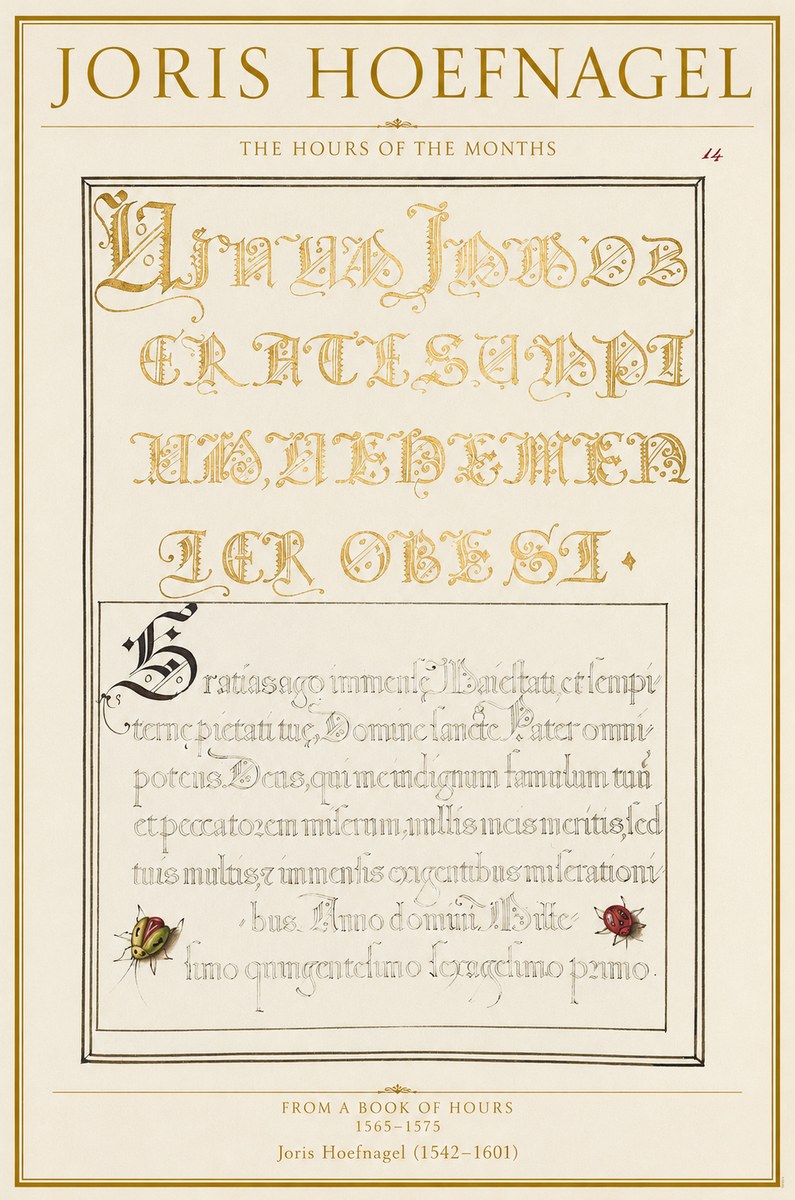 JORIS HOEFNAGEL
THE HOURS OF THE MONTHS
14
UINUM IMMOD
ERATE SUMPT
UM, UEHEMEN
TER OBEST.
Gratias ago immensę Maiestati, et sempi-
ternę pietati tuę, Domine sancte Pater omni-
potens Deus, qui me indignum famulum tuū
et peccatorem miserum, nullis meis meritis, sed
tuis multis, & immensis exigentibus miserationi-
bus. Anno domini Mille-
simo quingentesimo sexagesimo primo.
FROM A BOOK OF HOURS
1565–1575
Joris Hoefnagel (1542–1601)